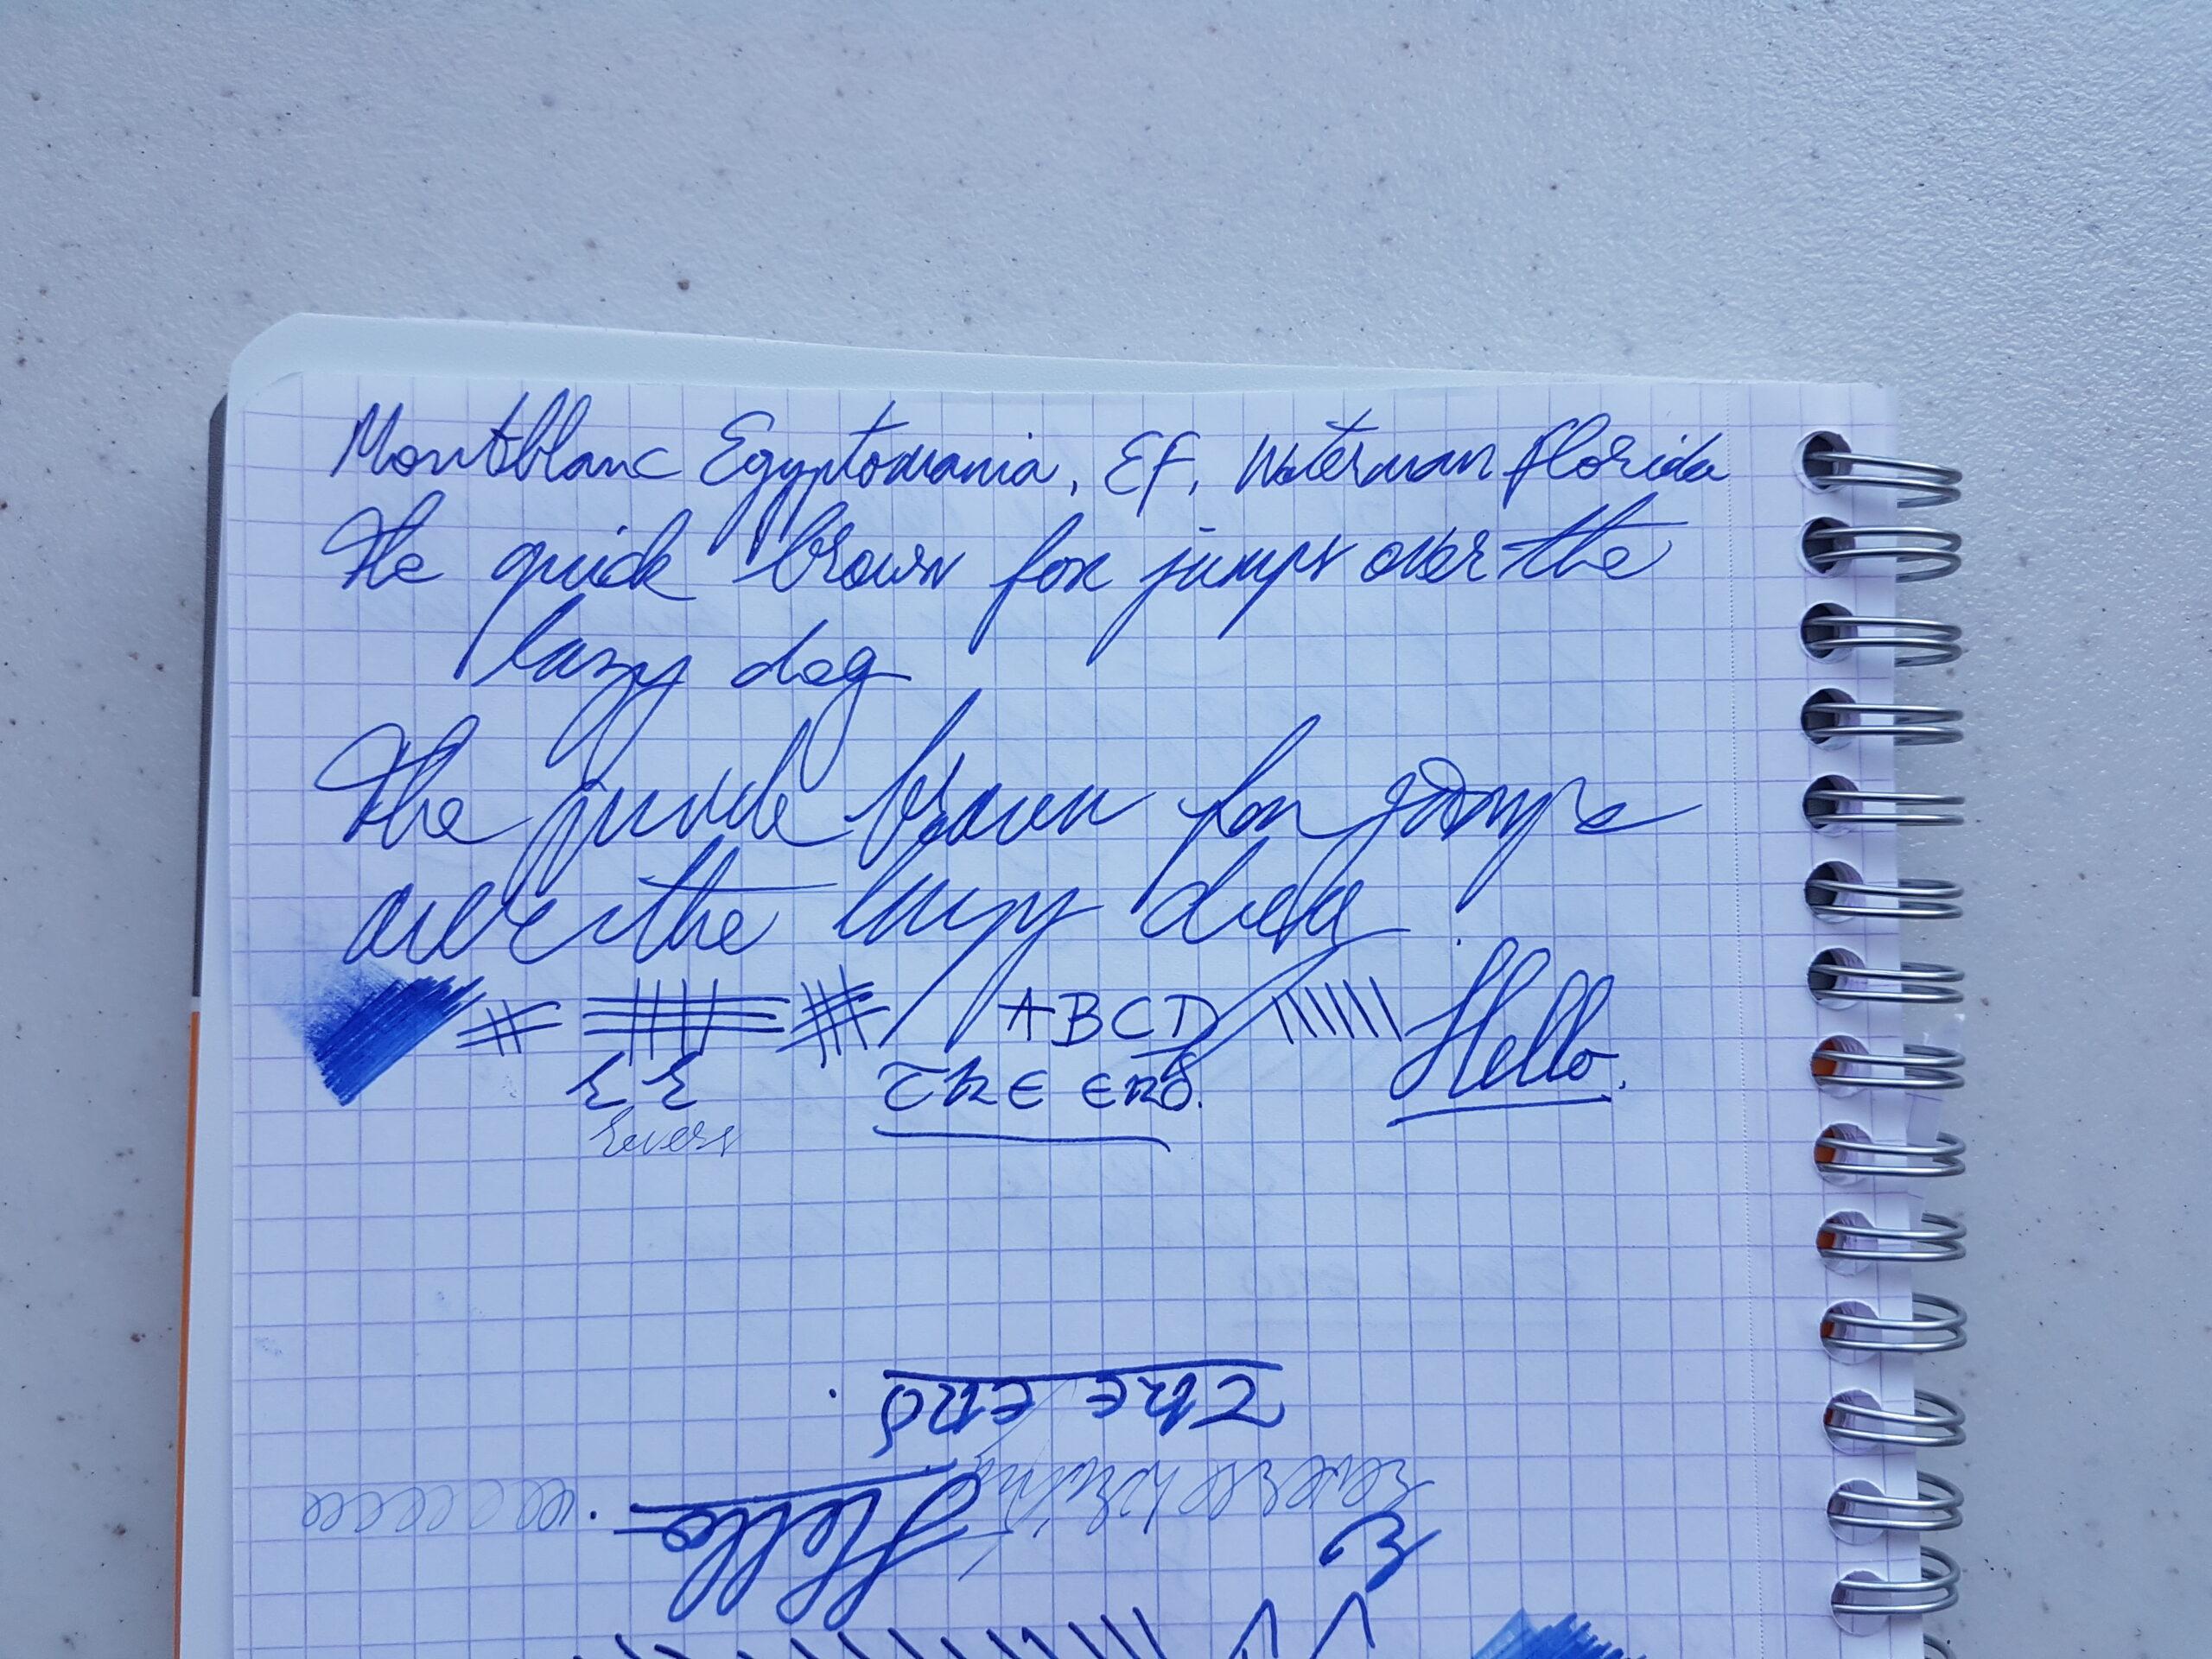 Montblanc Egyptomania, EF, Waterman Florida
The quick brown fox jumps over the
lazy dog
The quick brown fox jumps
over the lazy dog.
ABCD
Hello.
THE END.
Revers
THE END.
Reverse writing
Hello.